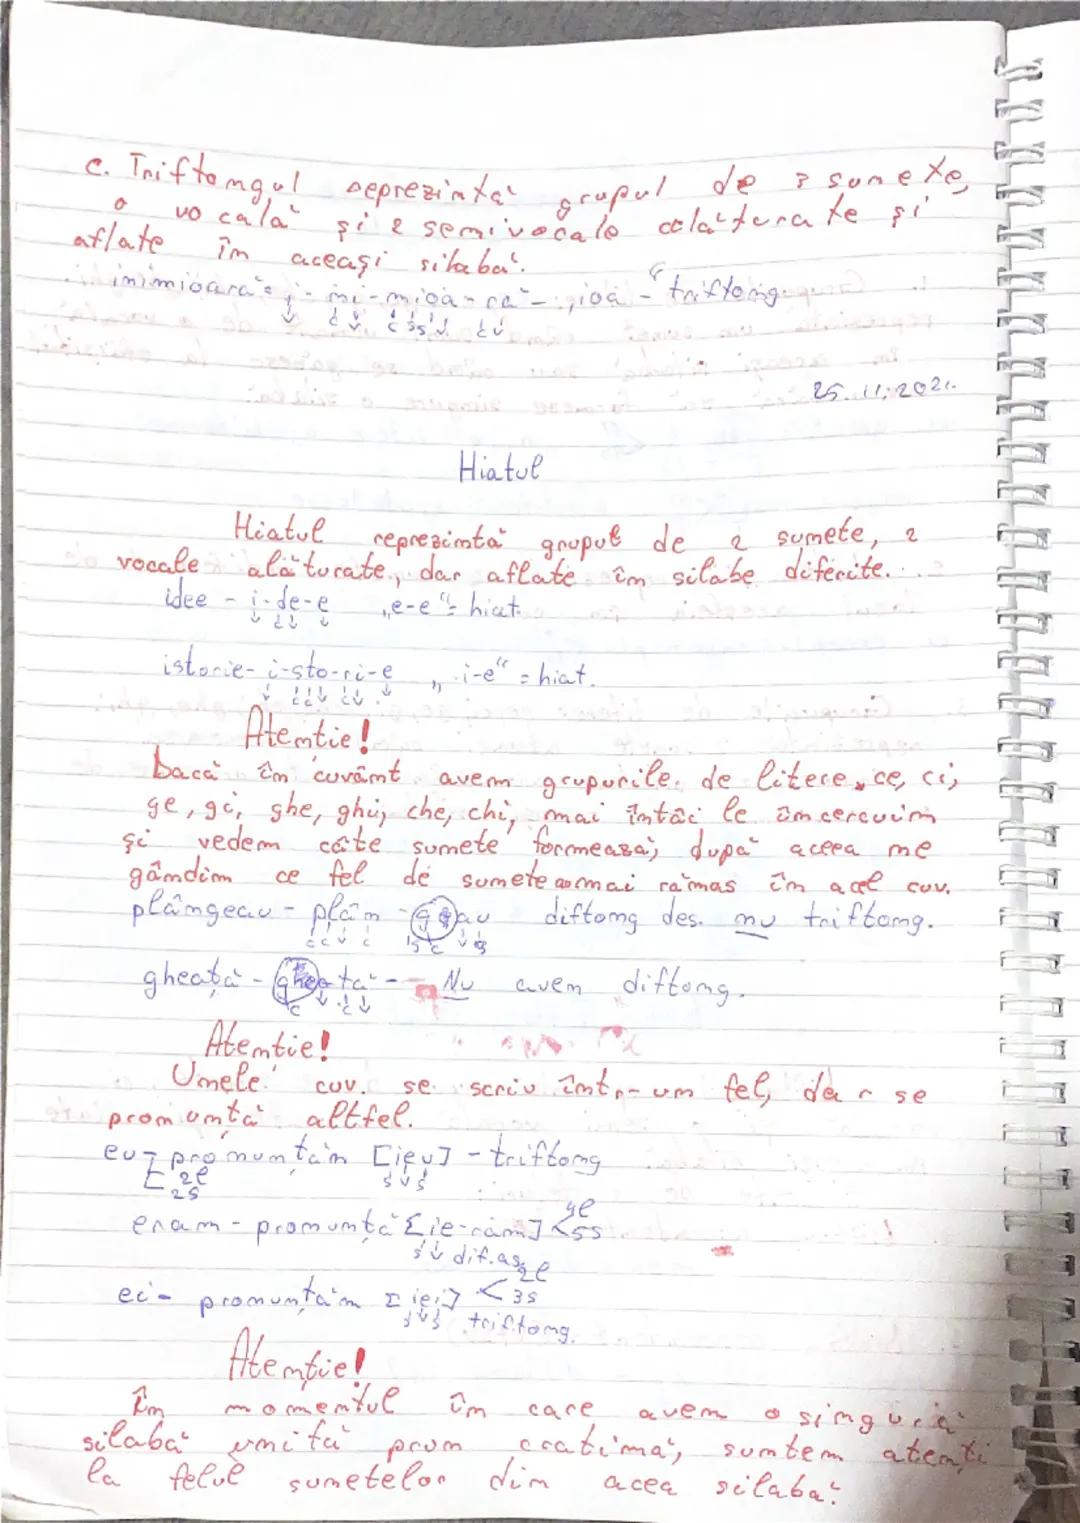 c. Triftongul reprezintă grupul de 3 sunete,
o vocală și 2 semivocale alăturate și
aflate în aceași silabă.
inimioară = i-ni-mioa-ră - „ioa" - triftong.
↓ ↓↓ ↓↓↓↓ ↓↓
v c v c s s v c v
25.11.2021.
Hiatul
Hiatul reprezintă grupul de 2 sunete, 2
vocale alăturate, dar aflate în silabe diferite.
idee - i-de-e „e-e" = hiat.
↓ ↓↓ ↓
istorie - i-sto-ri-e „i-e" = hiat.
Atentie!
Dacă în cuvânt avem grupurile de litere ce, ci,
ge, gi, ghe, ghi, che, chi, mai întâi le încercuim
și vedem câte sunete formează, după aceea ne
gândim ce fel de sunete au mai rămas în acel cuv.
plângeau - plân - geau diftong des. nu triftong.
c c v c
gheață - ghea-ță - Nu avem diftong.
Atentie!
Unele cuv. se scriu într-un fel, dar se
pronunta altfel.
eu - pronunțăm [ieu] - triftong
2l
2s
s v s
eram - pronunță [ie-ram] < 4l
5s
s v dif. as.
ei - pronunțăm [iei] < 2l
3s
s v s triftong.
Atenție!
În momentul în care avem o singură
silabă unită prin cratimă, suntem atenți
la felul sunetelor din acea silabă.